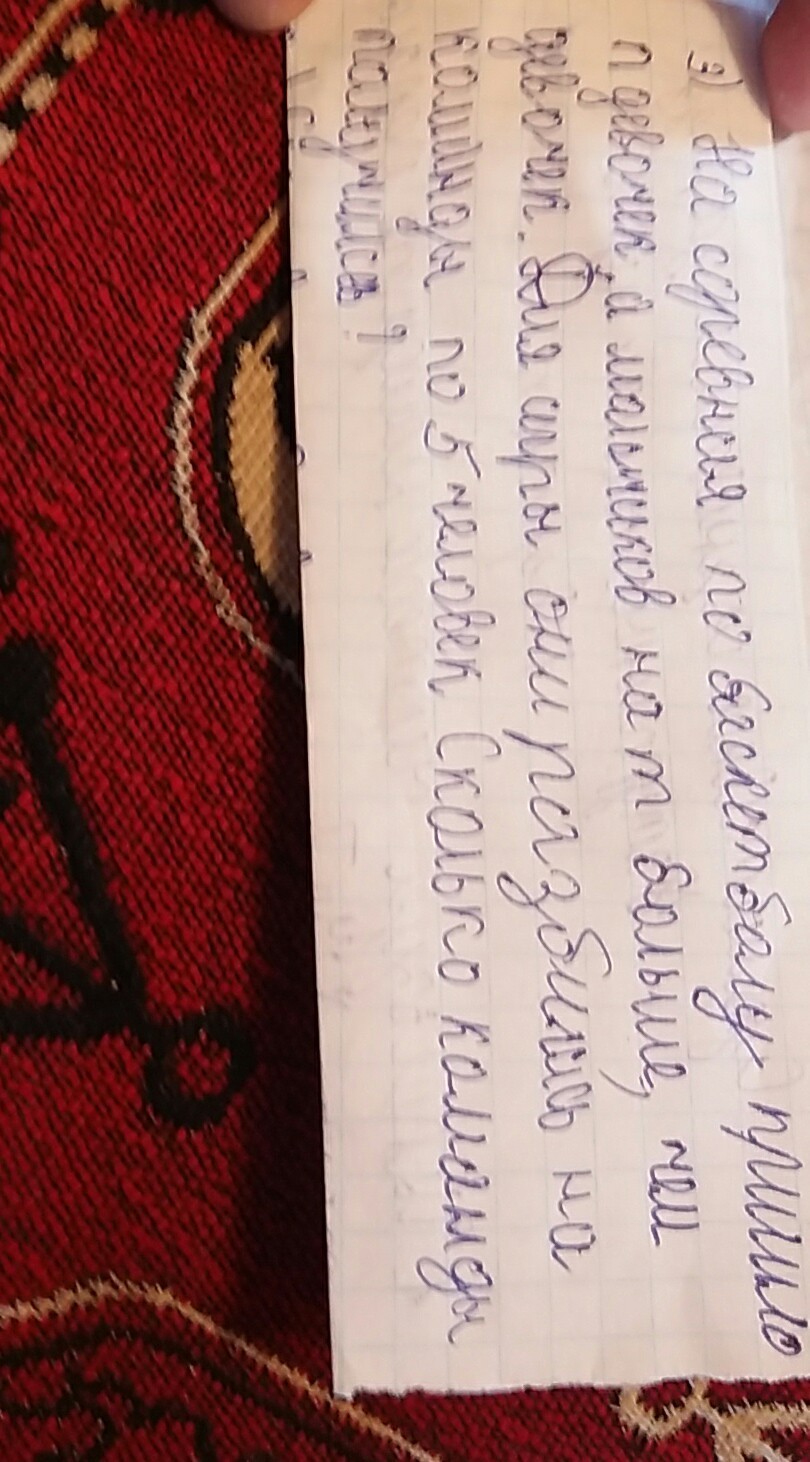 э) На соревная по баскетболу пришло
п девочек, а мальчиков на т больше, чем
девочек. Для игры они разбились на
команды по 5 человек Сколько команды
получился?